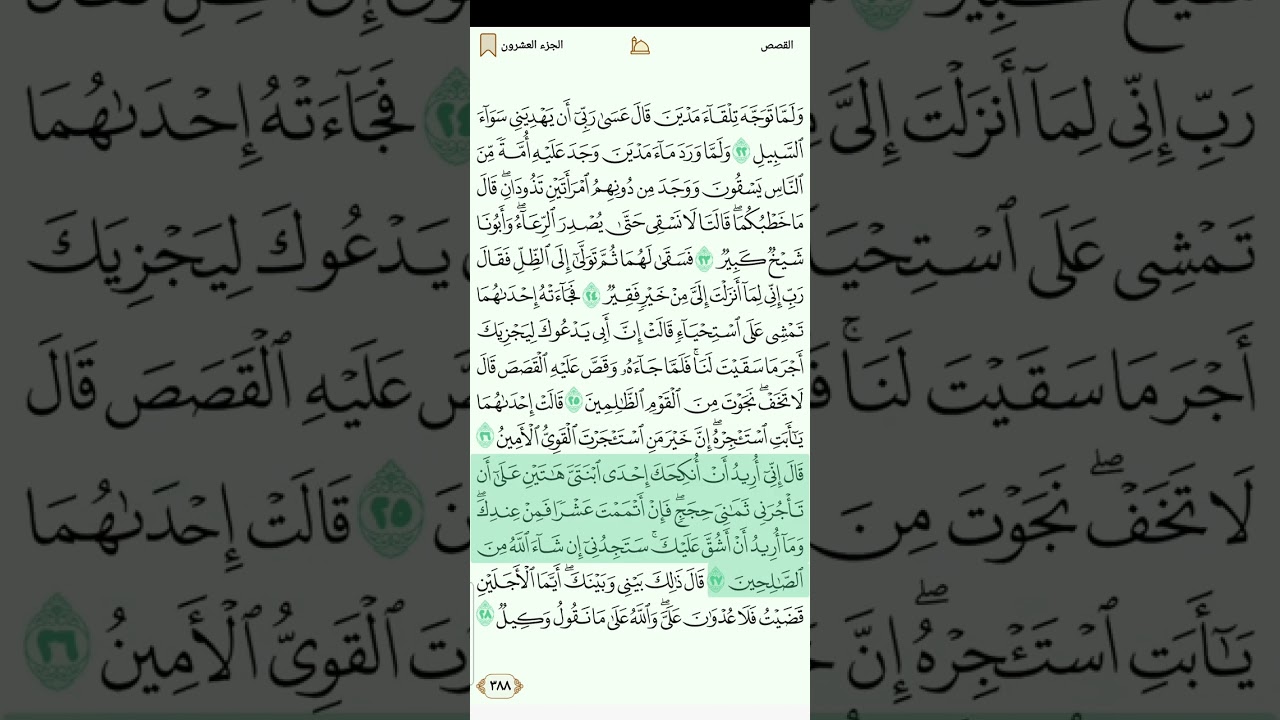 القصص
الجزء العشرون
وَلَمَّا تَوَجَّهَ تِلْقَآءَ مَدْيَنَ قَالَ عَسَىٰ رَبِّىٓ أَن يَهْدِيَنِى سَوَآءَ
ٱلسَّبِيلِ ٢٢ وَلَمَّا وَرَدَ مَآءَ مَدْيَنَ وَجَدَ عَلَيْهِ أُمَّةً مِّنَ
ٱلنَّاسِ يَسْقُونَ وَوَجَدَ مِن دُونِهِمُ ٱمْرَأَتَيْنِ تَذُودَانِۖ قَالَ
مَا خَطْبُكُمَاۖ قَالَتَا لَا نَسْقِى حَتَّىٰ يُصْدِرَ ٱلرِّعَآءُۖ وَأَبُونَا
شَيْخٌ كَبِيرٌ ٢٣ فَسَقَىٰ لَهُمَا ثُمَّ تَوَلَّىٰٓ إِلَى ٱلظِّلِّ فَقَالَ
رَبِّ إِنِّى لِمَآ أَنزَلْتَ إِلَىَّ مِنْ خَيْرٍ فَقِيرٌ ٢٤ فَجَآءَتْهُ إِحْدَىٰهُمَا
تَمْشِى عَلَى ٱسْتِحْيَآءٍ قَالَتْ إِنَّ أَبِى يَدْعُوكَ لِيَجْزِيَكَ
أَجْرَ مَا سَقَيْتَ لَنَاۚ فَلَمَّا جَآءَهُۥ وَقَصَّ عَلَيْهِ ٱلْقَصَصَ قَالَ
لَا تَخَفْۖ نَجَوْتَ مِنَ ٱلْقَوْمِ ٱلظَّٰلِمِينَ ٢٥ قَالَتْ إِحْدَىٰهُمَا
يَٰٓأَبَتِ ٱسْتَـْٔجِرْهُۖ إِنَّ خَيْرَ مَنِ ٱسْتَـْٔجَرْتَ ٱلْقَوِىُّ ٱلْأَمِينُ ٢٦
قَالَ إِنِّىٓ أُرِيدُ أَنْ أُنكِحَكَ إِحْدَى ٱبْنَتَىَّ هَٰتَيْنِ عَلَىٰٓ أَن
تَأْجُرَنِى ثَمَٰنِىَ حِجَجٍۖ فَإِنْ أَتْمَمْتَ عَشْرًا فَمِنْ عِندِكَۖ
وَمَآ أُرِيدُ أَنْ أَشُقَّ عَلَيْكَۚ سَتَجِدُنِىٓ إِن شَآءَ ٱللَّهُ مِنَ
ٱلصَّٰلِحِينَ ٢٧ قَالَ ذَٰلِكَ بَيْنِى وَبَيْنَكَۖ أَيَّمَا ٱلْأَجَلَيْنِ
قَضَيْتُ فَلَا عُدْوَٰنَ عَلَىَّۖ وَٱللَّهُ عَلَىٰ مَا نَقُولُ وَكِيلٌ ٢٨
٣٨٨